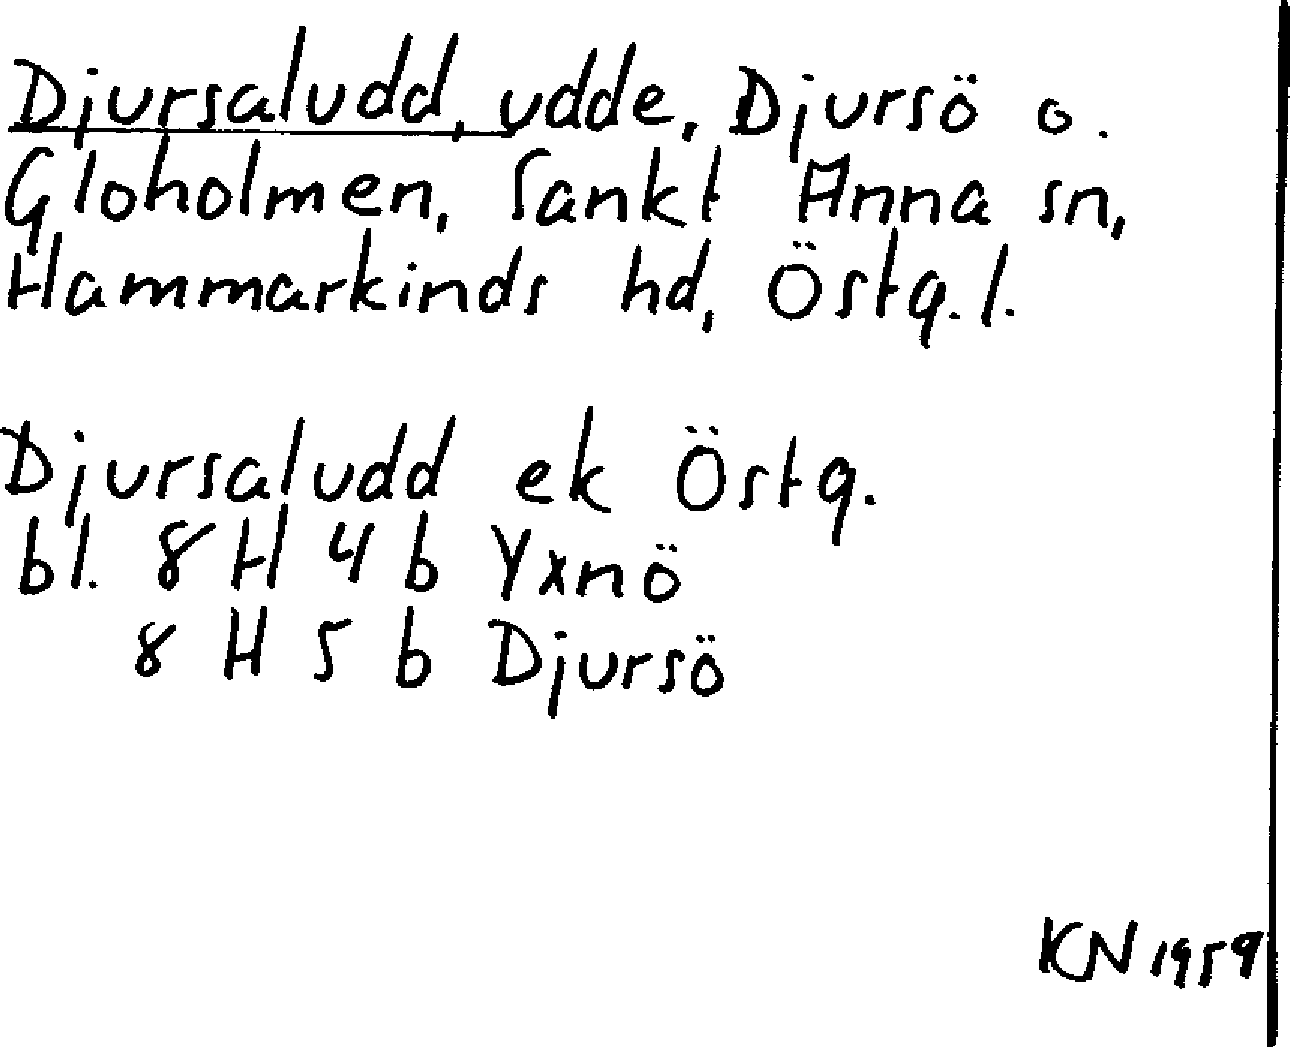 Djursaludd, udde, Djursö o.
Gloholmen, Sankt Anna sn,
Hammarkinds hd, Östg. l.
Djursaludd ek Östg.
bl. 8 H 4 b Yxnö
8 H 5 b Djursö
KN 1959